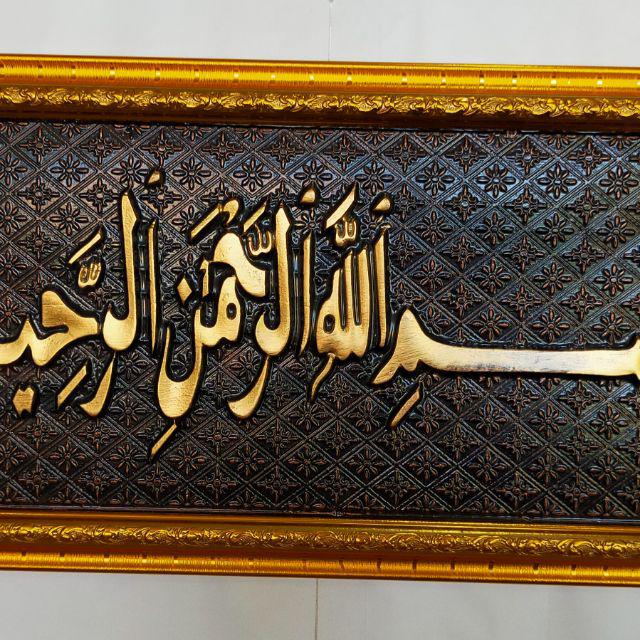 بِسمِ اللّٰهِ الرَّحْمٰنِ الرَّحِيم